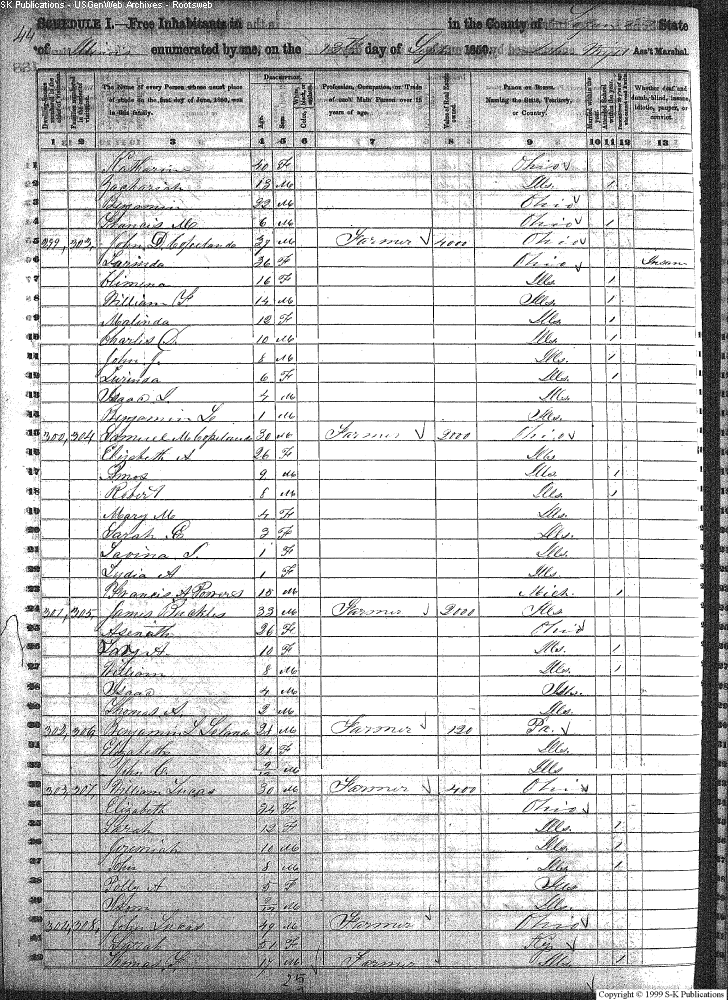 SK Publications - USGenWeb Archives - Rootsweb
44
SCHEDULE I.—Free Inhabitants in in the County of State
of enumerated by me, on the 13th day of Sept 1850. Ass't Marshal.
Dwelling-houses numbered in the order of visitation. Families numbered in the order of visitation. The Name of every Person whose usual place of abode on the first day of June, 1850, was in this family. Description. Age. Sex. Color, White, black, or mulatto. Profession, Occupation, or Trade of each Male Person over 15 years of age. Value of Real Estate owned. Place of Birth. Naming the State, Territory, or Country. Married within the year. Attended School within the year. Whether deaf and dumb, blind, insane, idiotic, pauper, or convict.
1 2 3 4 5 6 7 8 9 10 11 12 13
1 Katharine 40 F Ohio
2 Zachariah 13 M Ills. 1
3 Benjamin 22 M Ohio
4 Francis M 6 M Ohio 1
5 299, 303, John D. Copelande 37 M Farmer 4000 Ohio
6 Larinda 36 F Ohio Insan
7 16 F Ills. 1
8 William F. 14 M Ills. 1
9 Malinda 12 F Ills. 1
10 Charles D. 10 M Ills. 1
11 John J. 8 M Ills. 1
12 Lurinda 6 F Ills. 1
13 Isaac S. 4 M Ills.
14 Benjamin L 1 M Ills.
15 300, 304, Samuel M Copelande 30 M Farmer 2000 Ohio
16 Elizabeth A 26 F Ills
17 Amos 9 M Ills. 1
18 Robert 8 M Ills. 1
19 Mary M 4 F Ills.
20 Sarah E 3 F Ills.
21 Lavina S. 1 F Ills.
22 Lydia A 1 F Ills.
23 Francis A Powers 15 M Mich. 1
24 301, 305, James Buckles 33 M Farmer 2000 Ills
25 Asenath 26 F Ohio
26 A. 10 F Ills. 1
27 William 8 M Ills. 1
28 Isaac 4 M Ills.
29 Thomas A. 2 M Ills.
30 302, 306, Benjamin L Lelande 28 M Farmer 120 Pa.
31 Elizabeth 21 F Ills.
32 John C. M Ills
33 303, 307, William Lucas 30 M Farmer 400 Ohio
34 Elizabeth 24 F Ohio
35 Sarah 12 F Ills. 1
36 Jeremiah 10 M Ills. 1
37 John 8 M Ills 1
38 Polly A 5 F Ills
39 M Ills.
40 304, 308, John Lucas 49 M Farmer Ohio
41 Sarah 51 F Ky
42 Thomas G. 17 M Farmer Ills 1
25
Copyright © 1999 S-K Publications